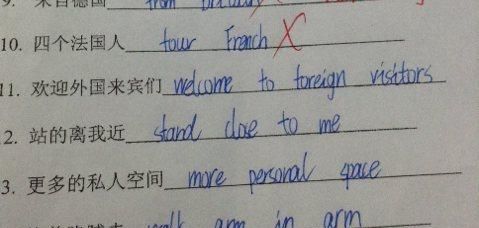 9. 来自德国 from
10. 四个法国人 four French X
11. 欢迎外国来宾们 welcome to foreign visitors
2. 站的离我近 stand close to me
3. 更多的私人空间 more personal space
walk arm in arm